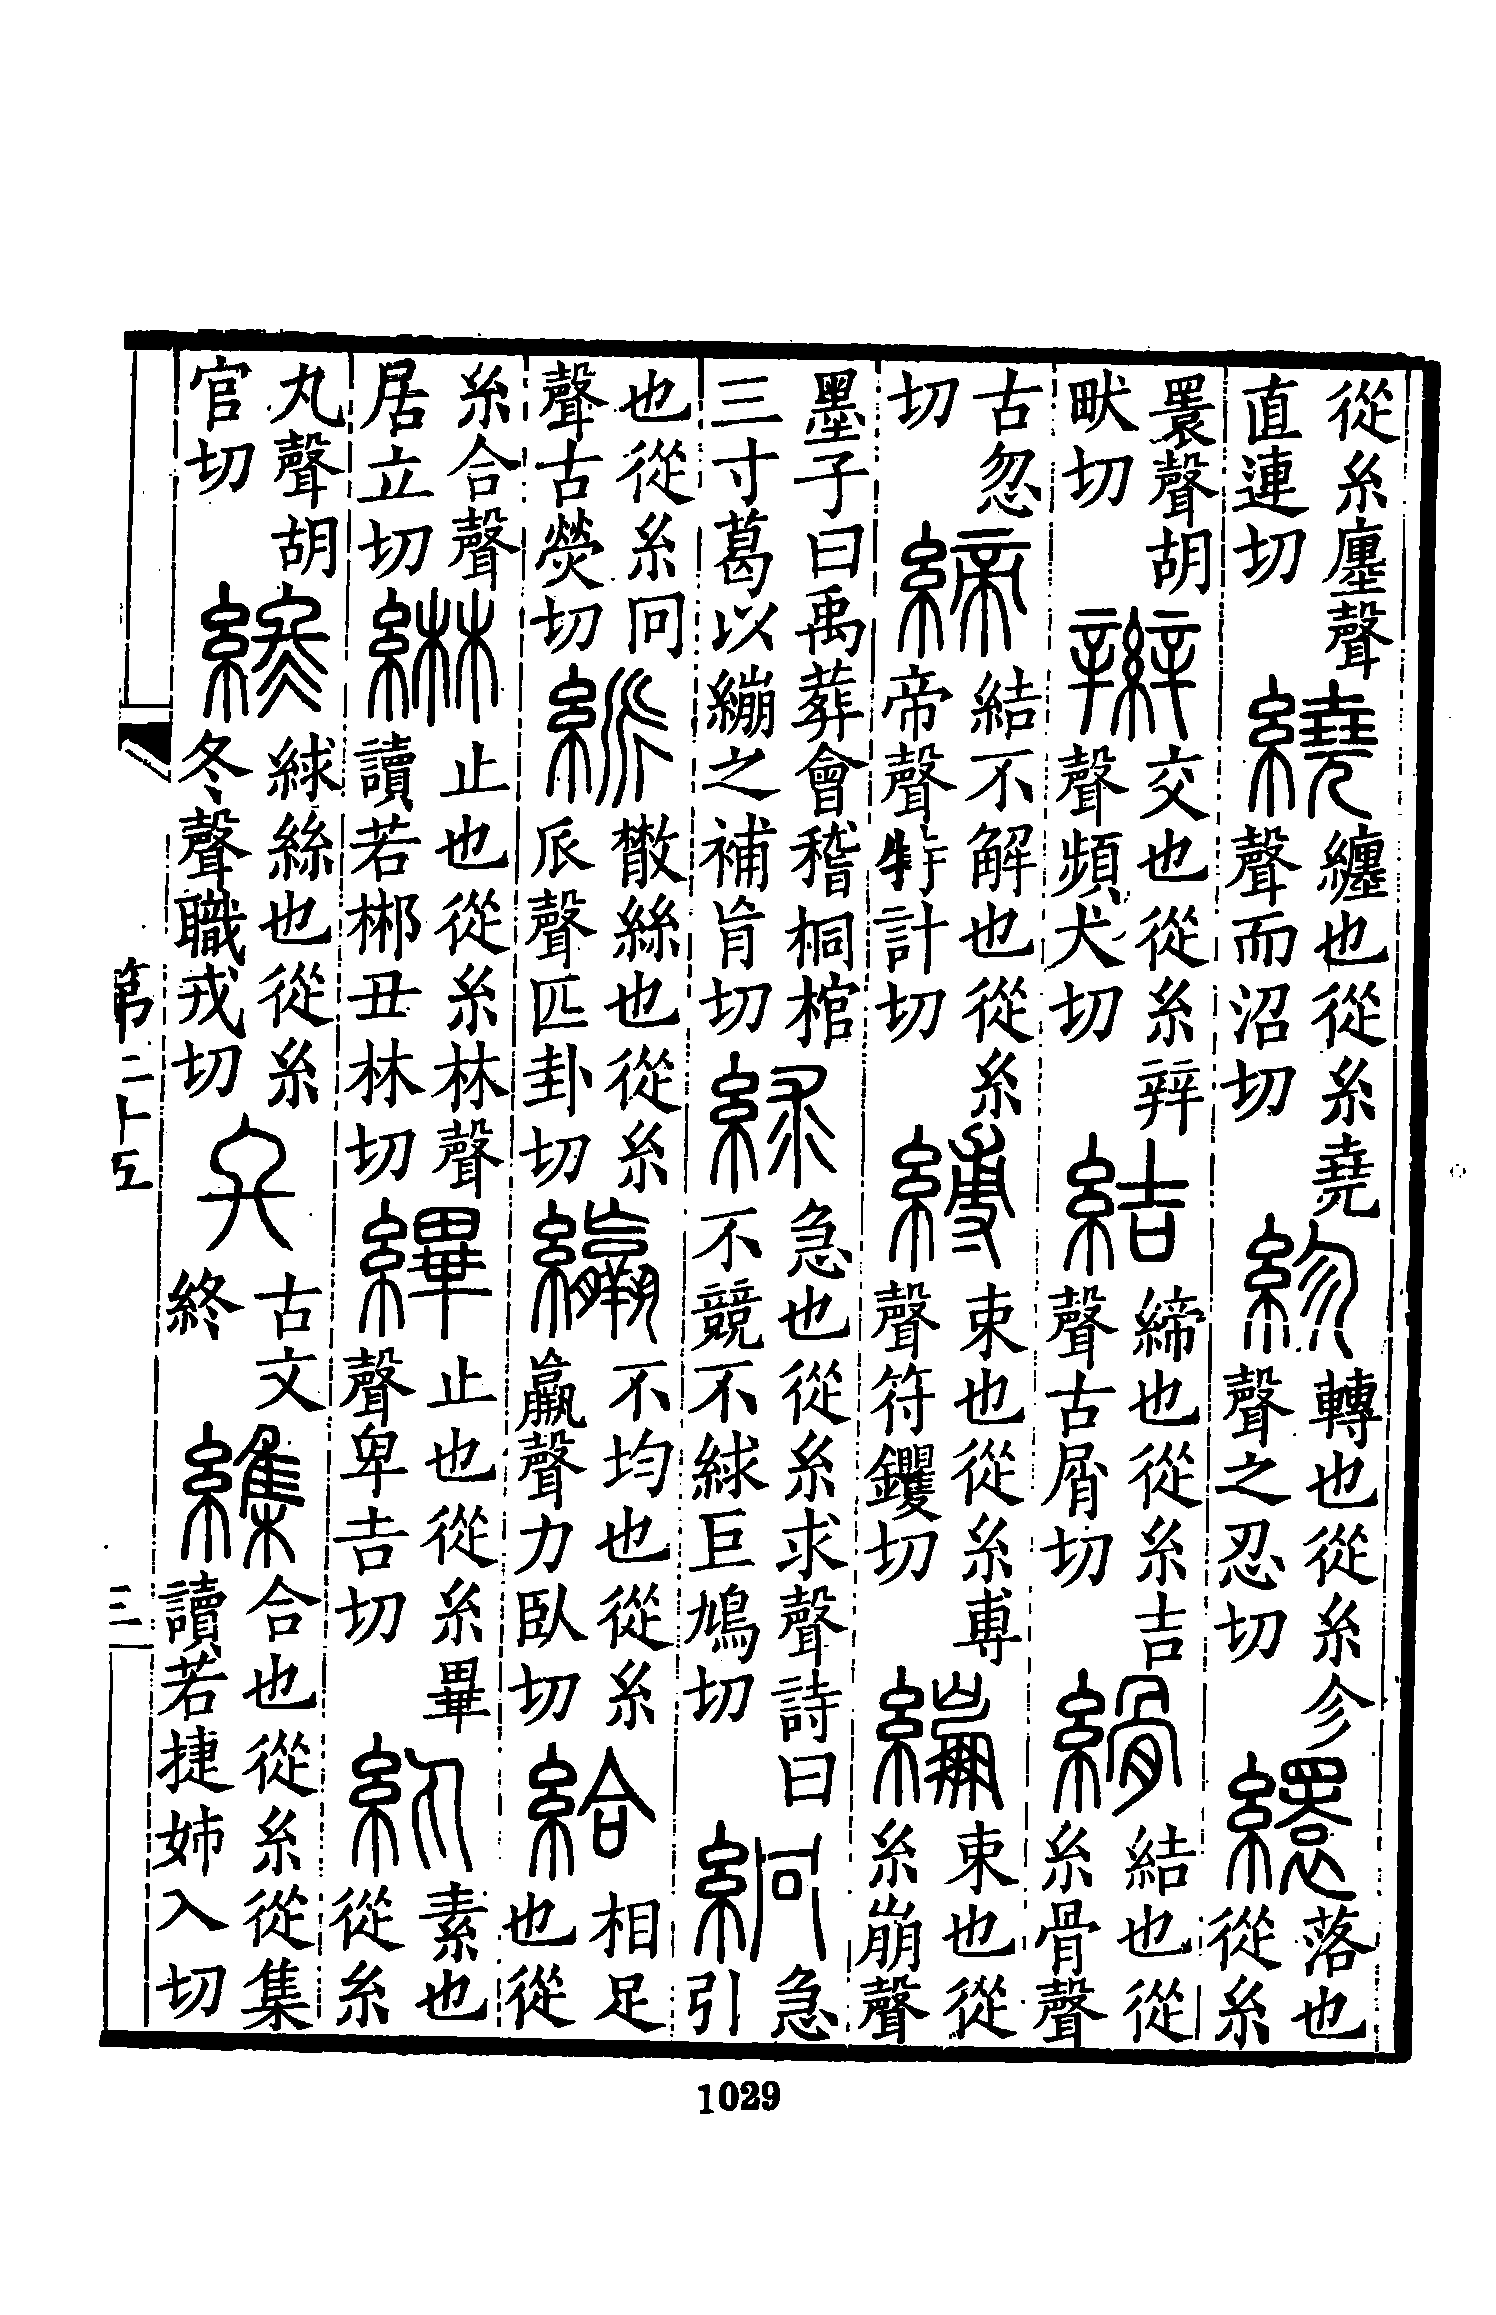 從糸廛聲直連切 繞 纏也從糸堯聲而沼切 紾 轉也從糸㐱聲之忍切 繯 落也從糸
睘聲胡畎切 辮 交也從糸辡聲頻犬切 結 締也從糸吉聲古屑切 縎 結也從糸骨聲
古忽切 締 結不解也從糸帝聲特計切 縛 束也從糸尃聲符钁切 繃 束也從糸崩聲
墨子曰禹葬會稽桐棺三寸葛以繃之補肯切 絿 急也從糸求聲詩曰不競不絿巨鳩切 絅 急引
也從糸冋聲古熒切 𥿯 散絲也從糸𠂢聲匹卦切 𦆁 不均也從糸羸聲力臥切 給 相足也從
糸合聲居立切 綝 止也從糸林聲讀若郴丑林切 縪 止也從糸畢聲卑吉切 紈 素也從糸
丸聲胡官切 終 絿絲也從糸冬聲職戎切 𠔾 古文終 𦆞 合也從糸從集讀若捷姉入切
第二十五
三
1029